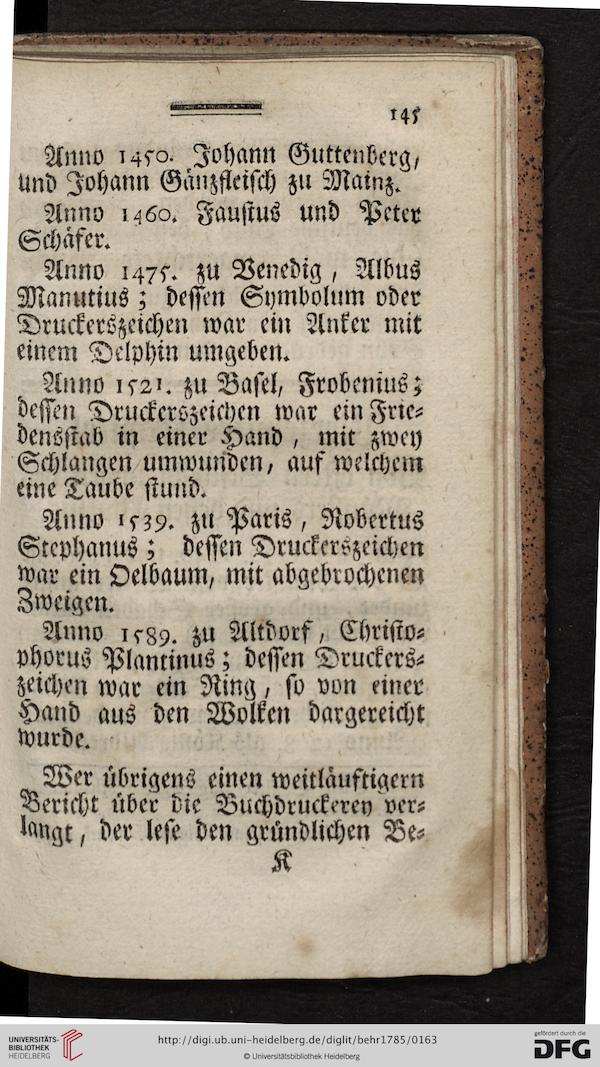 145
Anno 1450. Johann Guttenberg,
und Johann Gänzfleisch zu Mainz.
Anno 1460. Faustus und Peter
Schäfer.
Anno 1475. zu Venedig, Albus
Manutius; dessen Symbolum oder
Druckerszeichen war ein Anker mit
einem Delphin umgeben.
Anno 1521. zu Basel, Frobenius;
dessen Druckerszeichen war ein Frie-
densstab in einer Hand, mit zwey
Schlangen umwunden, auf welchem
eine Taube stund.
Anno 1539. zu Paris, Robertus
Stephanus; dessen Druckerszeichen
war ein Oelbaum, mit abgebrochenen
Zweigen.
Anno 1589. zu Altdorf, Christo-
phorus Plantinus; dessen Druckers-
zeichen war ein Ring, so von einer
Hand aus den Wolken dargereicht
wurde.
Wer übrigens einen weitläuftigern
Bericht über die Buchdruckerey ver-
langt, der lese den gründlichen Be-
K
UNIVERSITÄTS-
BIBLIOTHEK
HEIDELBERG
http://digi.ub.uni-heidelberg.de/diglit/behr1785/0163
© Universitätsbibliothek Heidelberg
gefördert durch die
DFG